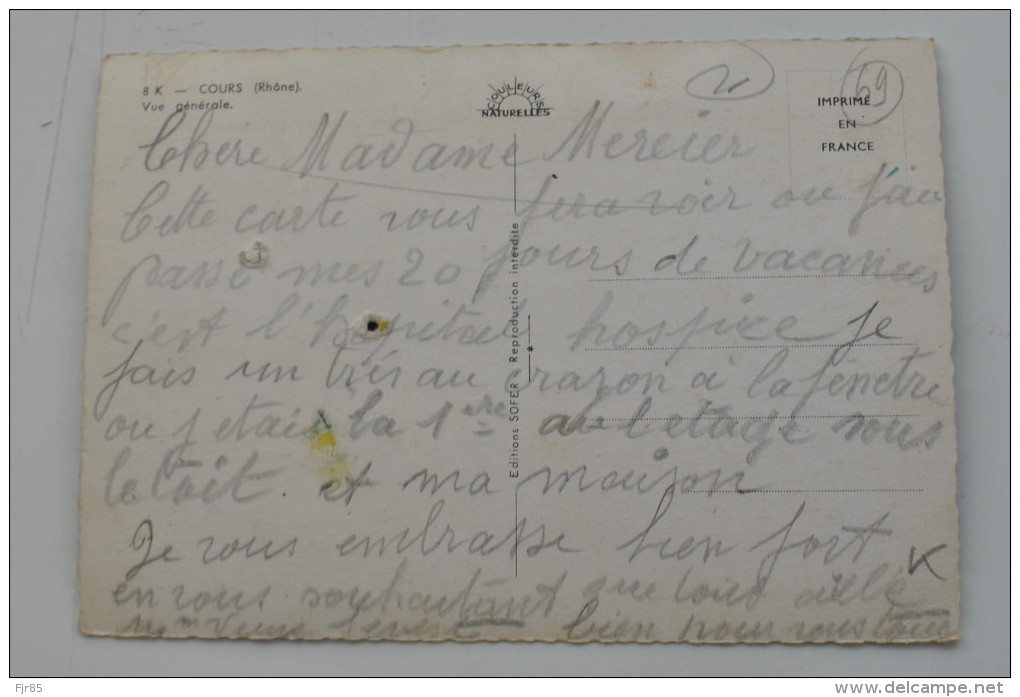 8 K — COURS (Rhône).
Vue générale.
COULEURS
NATURELLES
69
IMPRIMÉ
EN
FRANCE
Chére Madame Mercier
Cette carte vous fera voir ou j'ai
passé mes 20 jours de vacances
c'est l'hopital hospice je
fais un trés au crazon à la fenetre
ou j etais la 1ere au letage sous
le toit et ma maison
Je vous embrasse bien fort
en vous souhaitant que tous aille
bien pour vous tous
Editions SOFER - Reproduction interdite
K
Fjr85
www.delcampe.net